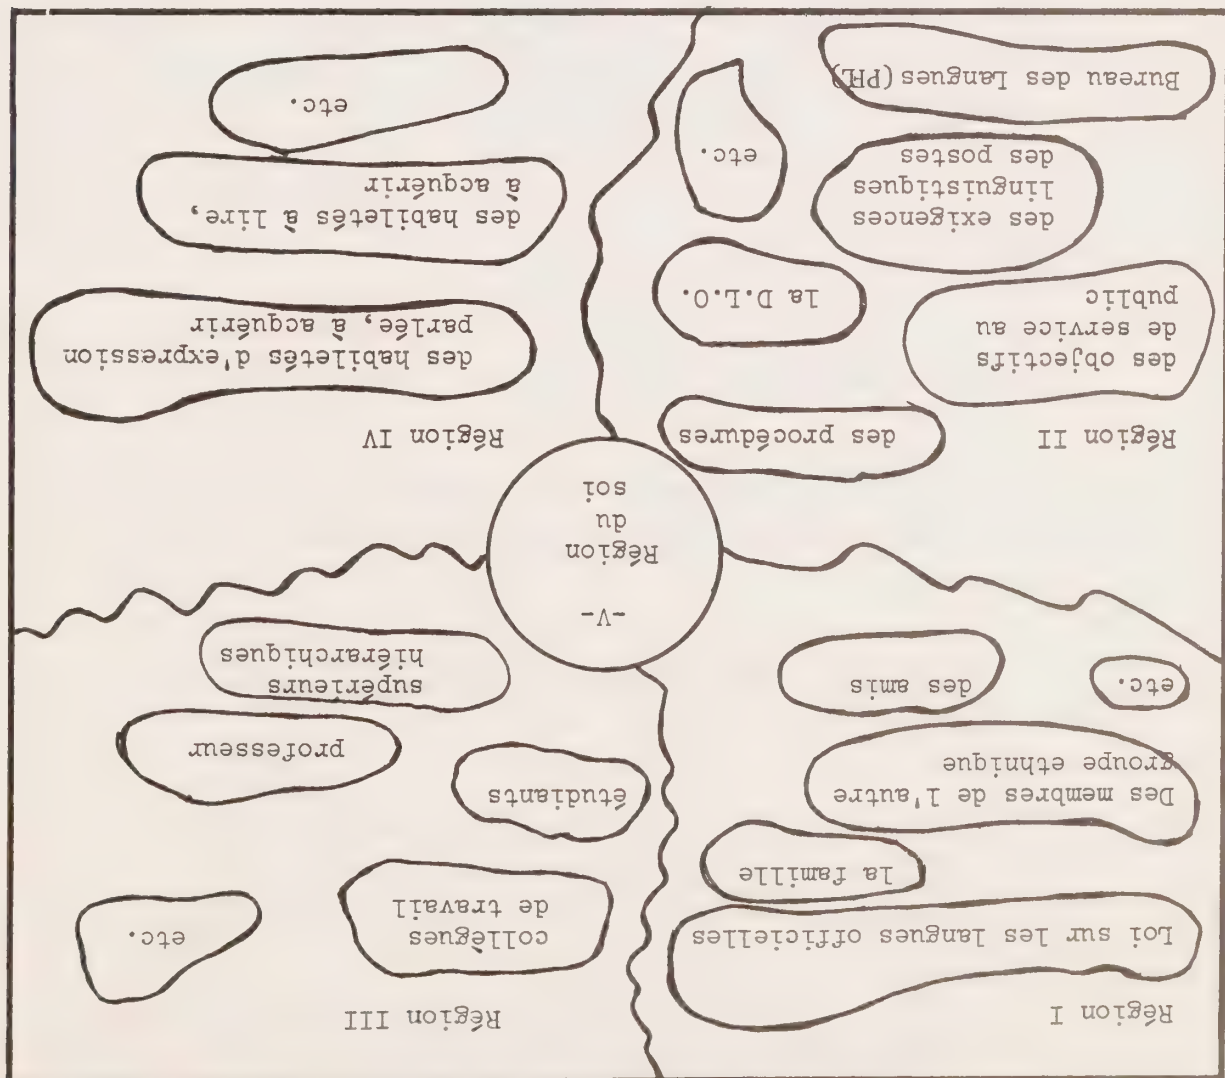 Région I
Loi sur les langues officielles
la famille
Des membres de l'autre
groupe ethnique
etc.
des amis
Région III
collègues
de travail
etc.
étudiants
professeur
supérieurs
hiérarchiques
-V-
Région
du
soi
Région II
des procédures
des objectifs
de service au
public
la D.L.O.
des exigences
linguistiques
des postes
etc.
Bureau des Langues (PHL)
Région IV
des habiletés d'expression
parlée, à acquérir
des habiletés à lire,
à acquérir
etc.